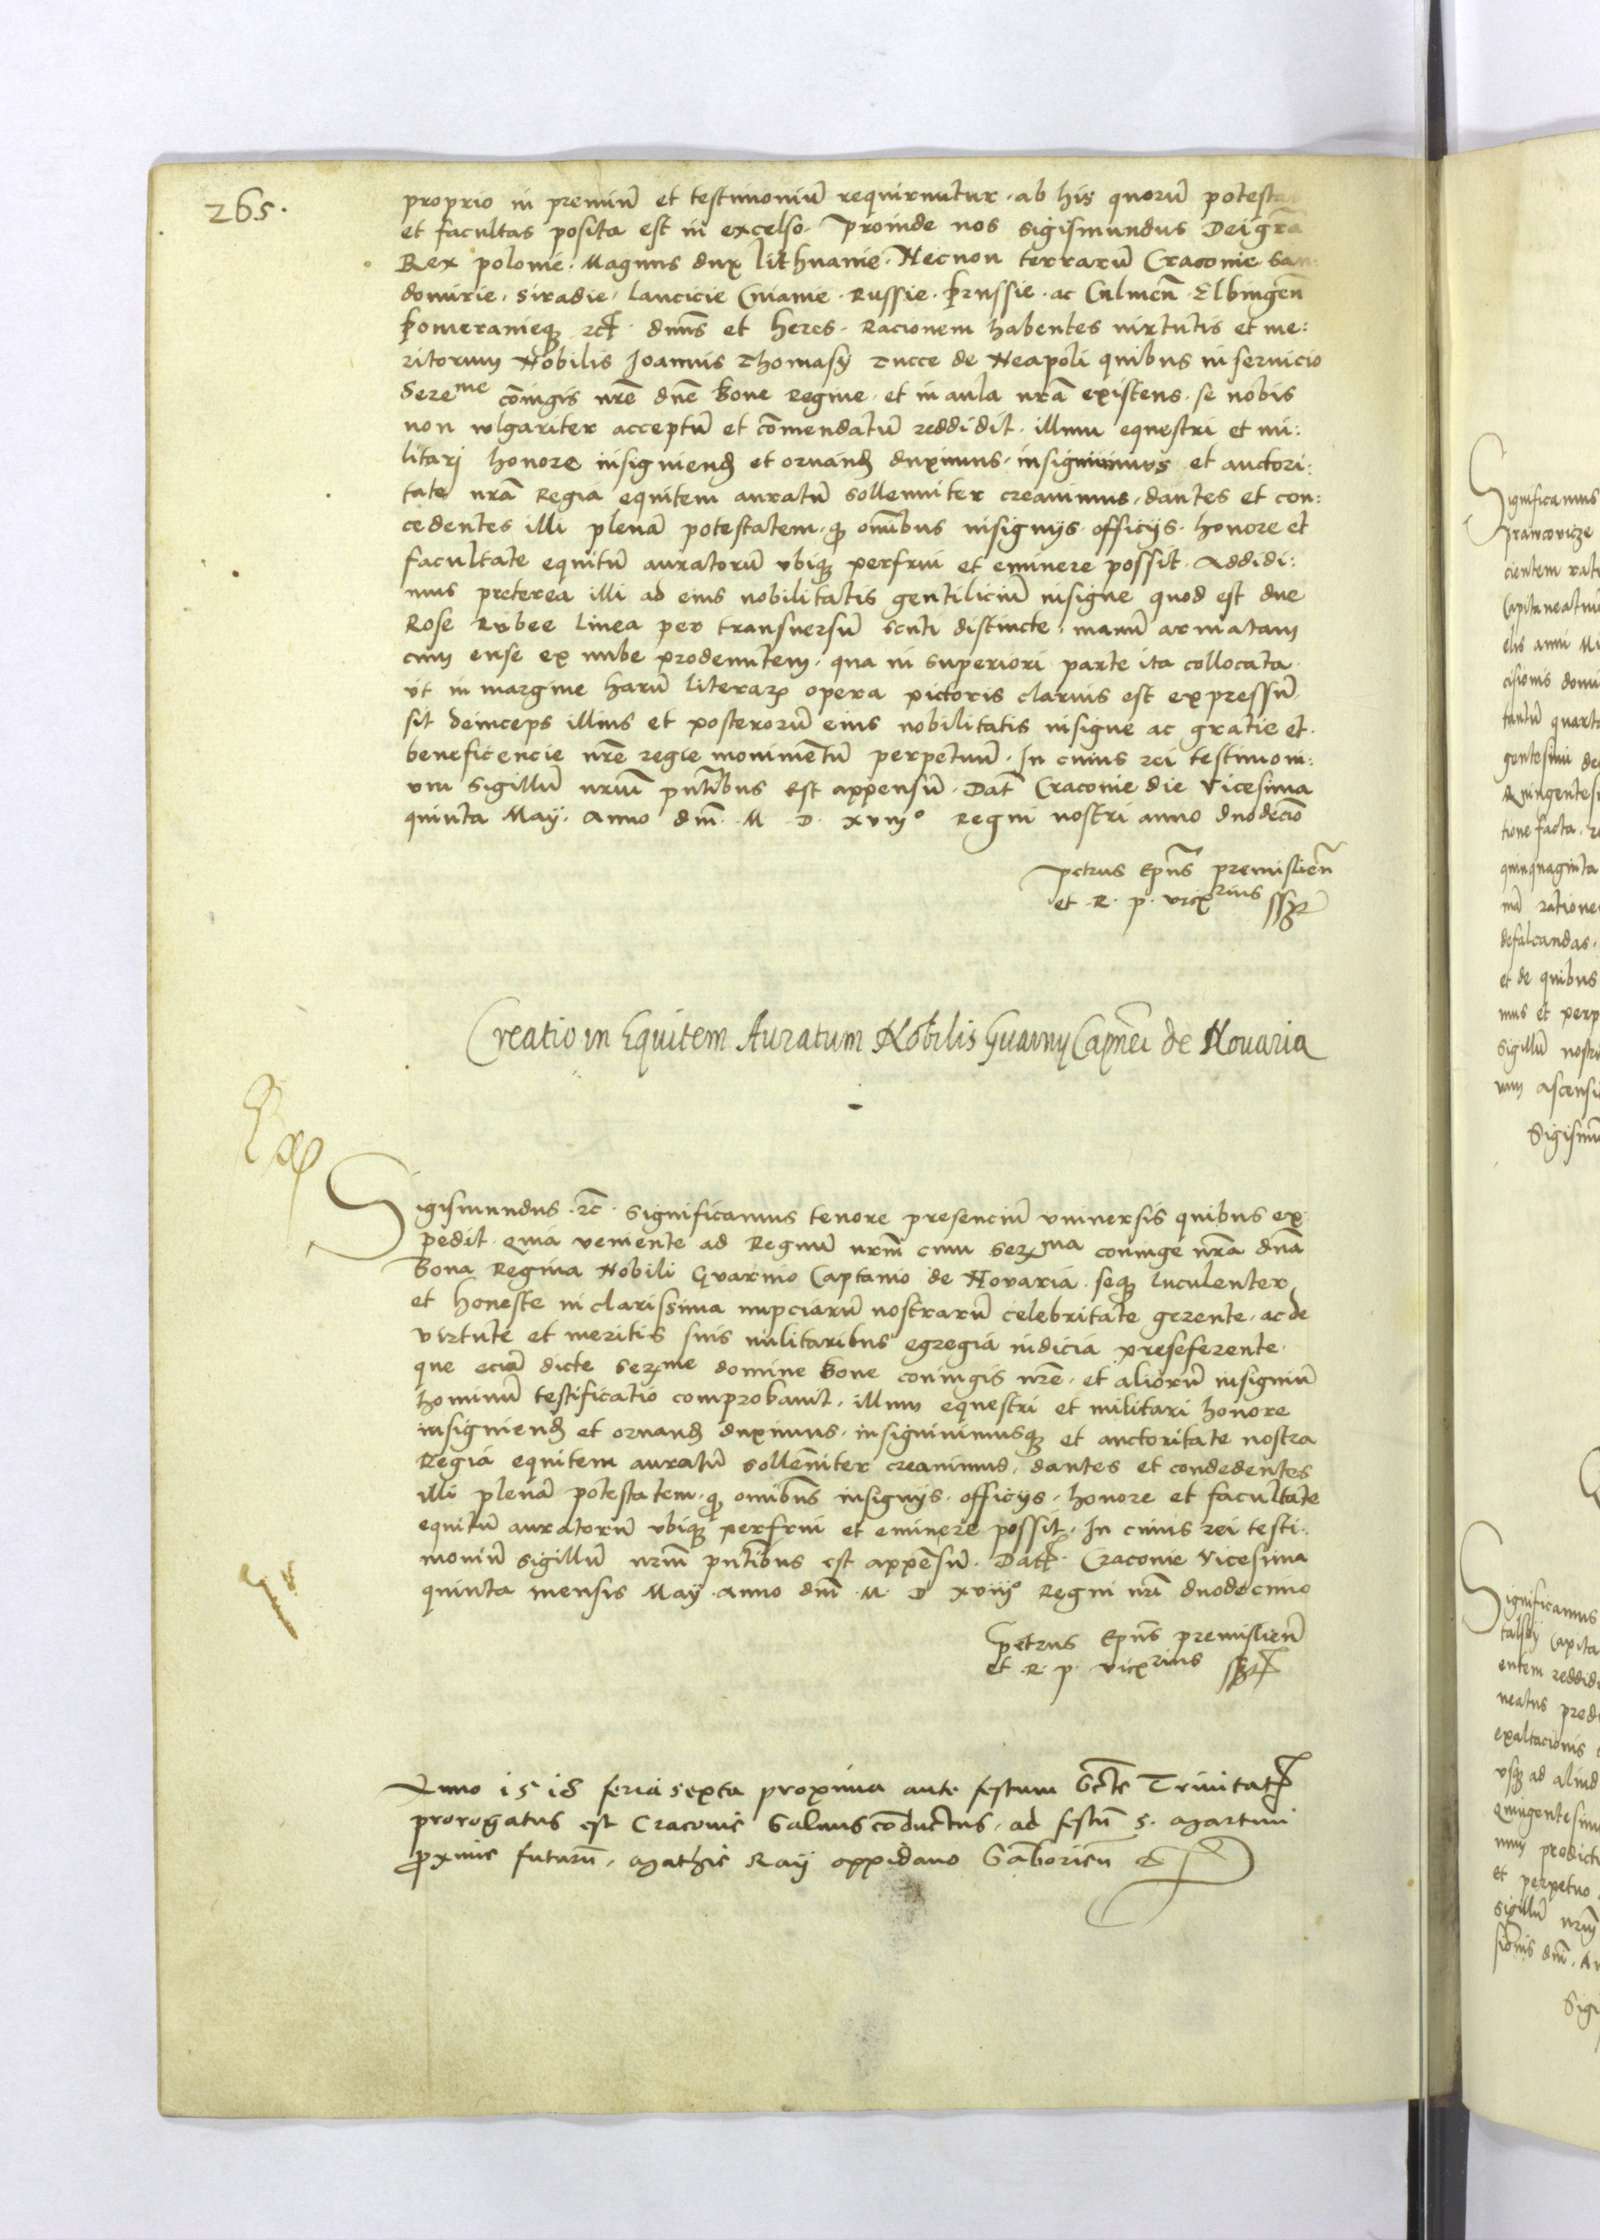 265.
proprio in premiũ et testimoniũ requiruntur. ab his quorũ potesta
et facultas posita est in excelso. Proinde nos Sigismundus Dei grã
Rex polonie. Magnus dux lithuanie. Necnon terrarũ Cracouie San:
domirie. Siradie. lancicie Cuiauie. Russie. Prussie. ac Culmeñ. Elbingeñ
Pomeranieqꝫ ꝛc̃. dn̄s et heres. Racionem habentes virtutis et me:
ritorum Nobilis Joannis Thomasÿ Tucce de Neapoli quibus in seruicio
Sereme coniugis nr̄e dn̄e Bone Regine. et in aula nr̄a existens. se nobis
non vlgariter acceptũ et cõmendatũ reddidit. illum equestri et mi:
litarj honore insigniendꝫ et ornandꝫ duximus. insigniuimus et auctori:
tate nr̄a Regia equitem auratũ sollenniter creauimus. dantes et con:
cedentes illi plenã potestatem. qꝫ om̄ibus insignÿs. officÿs. honore et
facultate equitũ auratorũ vbiqꝫ perfrui et eminere possit. Addidi:
mus preterea illi ad eius nobilitatis gentiliciũ insigne quod est due
Rose Rubee linea per transuersũ scuti distincte. manũ armatam
cum ense ex nube prodeuntem. qua in superiori parte ita collocata.
vt in margine harũ literarꝝ opera pictoris clarius est expressũ.
sit deinceps illius et posterorũ eius nobilitatis insigne ac gratie et.
beneficencie nr̄e regie monimentũ perpetuũ. In cuius rei testimoni:
um Sigillũ nr̄um pn̄tibus est appensũ. Dat̃ Cracouie die Vicesima
quinta May. Anno dn̄i. M D. xviijº Regni nostri anno duodecĩo
Petrus Epūs premislieñ
et R. p. vicꝫrius ssꝫt
Creatio in Equitem Auratum Nobilis Guarnÿ Capnei de Nouaria
Sigismundus. ꝛc̃. Significamus tenore presenciũ vniuersis quibus ex:
pedit. quia veniente ad Regnũ nr̄m cum Serꝫma coniuge nr̄a dn̄a
Bona Regina Nobili Guarnio Captanio de Nouaria. seqꝫ luculenter
et honeste in clarissima nupciarũ nostrarũ celebritate gerente. ac de
virtute et meritis suis militaribus egregia indicia preseferente.
que eciã dicte Serꝫme domine Bone coniugis nr̄e. et aliorũ insigniũ
hominũ testificatio comprobauit. illum equestri et militari honore
insigniendꝫ et ornandꝫ duximus. insigniuimusqꝫ et auctoritate nostra
Regia equitem auratũ sollẽniter creauimus. dantes et condedentes
illi plenã potestatem. qꝫ omibūs insignÿs. officÿs. honore et facultate
equitũ auratorũ vbiqꝫ perfrui et eminere possit. In cuius rei testi:
moniũ sigillũ nr̄m pn̄tibus est appẽsũ. Dat̃. Cracouie Vicesima
quinta mensis Maÿ. anno dn̄i. M. D xviijº Regni nr̄i duodecimo
Petrus Epūs premislieñ
et R. p. vicꝫrius ssꝫt
Anno 1518 feria sexta proxima ante festum Sctẽ Trinitat̃
prorogatus est Cracouie Saluus cõductus. ad festũ S. Martini
proxime futurũ. Mathie Ray oppidano Sãborieñ
Significamus
francovicze
cientem rati
Capitaneatum
cisionis domi
tantũ quarta
gentesimi de
Quingentesi
tione facta. r
quinquaginta
mã ratione
defalcandas.
et de quibus
mus et perp
Sigillũ nostr
um ascensi
Sigismu
Significamus
talsky Capita
entem reddidi
neatus predi
exaltacionis
vsqꝫ ad aliud
Quingentesim
num predict
et perpetuo
Sigillũ nr̄m
sionis dn̄i. A
Sigi